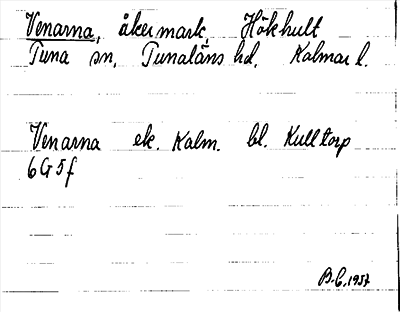 Venarna, åkermark, Hökhult
Tuna sn, Tunaläns hd, Kalmar l.
Venarna ek. Kalm. bl. Kulltorp
6G5f
B.C. 1957